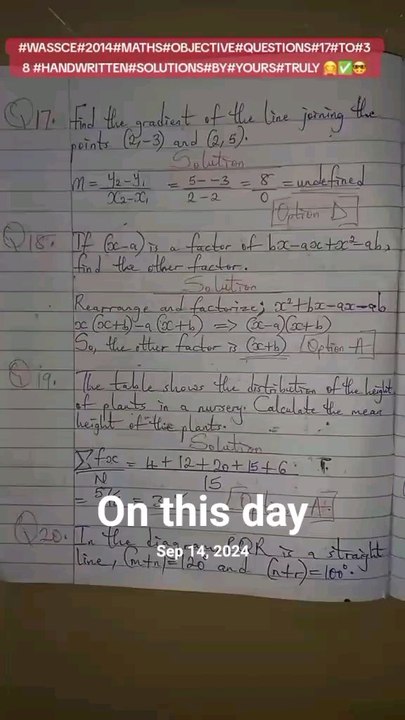 #WASSCE#2014#MATHS#OBJECTIVE#QUESTIONS#17#TO#3
8 #HANDWRITTEN#SOLUTIONS#BY#YOURS#TRULY 🤗✅😎
Q17. Find the gradient of the line joining the
points (2,-3) and (2,5).
Solution
m = y₂-y₁/x₂-x₁ = 5--3/2-2 = 8/0 = undefined
Option D
Q18. If (x-a) is a factor of bx-ax+x²-ab,
find the other factor.
Solution
Rearrange and factorize; x²+bx-ax-ab
x(x+b)-a(x+b) => (x-a)(x+b)
So, the other factor is (x+b) Option A
Q19. The table shows the distribution of the height
of plants in a nursery. Calculate the mean
height of the plants.
Solution
∑fx/N = 4+12+20+15+6/15
On this day
Sep 14, 2024
Q20. In the is a straight
line, (m+n)=120 and (n+r)=100°.